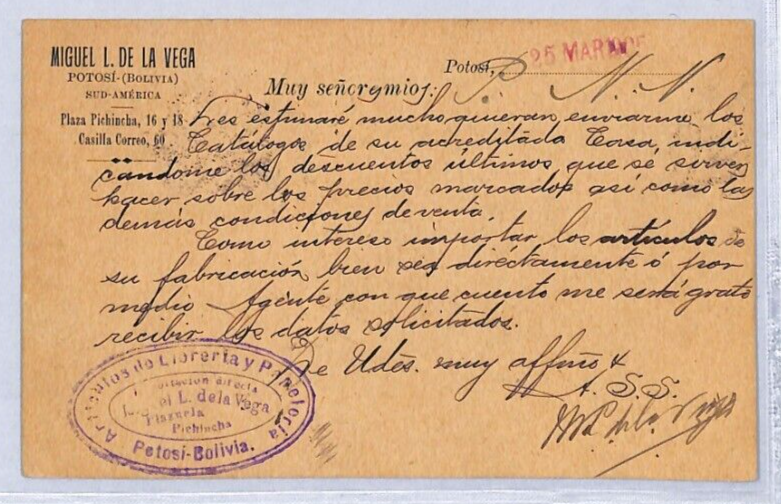 MIGUEL L. DE LA VEGA
POTOSÍ-(BOLIVIA)
SUD-AMÉRICA
Plaza Pichincha, 16 y 18
Casilla Correo, 60
Potosí, 25 MAR 1905
Muy señores míos: P. N. N.
Les estimaré mucho quieran enviarme los
Catálogos de su acreditada Casa, indi-
cándome los descuentos últimos que se sirven
hacer sobre los precios marcados así como las
demás condiciones de venta.
Como intereso importar los artículos de
su fabricación bien sea directamente ó por
medio Agente con que cuento me será grato
recibir los datos solicitados.
De Udes. muy affmo &
A. S. S.
M L de la Vega
Artículos de Librería y Papelería
directa
L. de la Vega
Plazuela
Pichincha
Potosí-Bolivia.